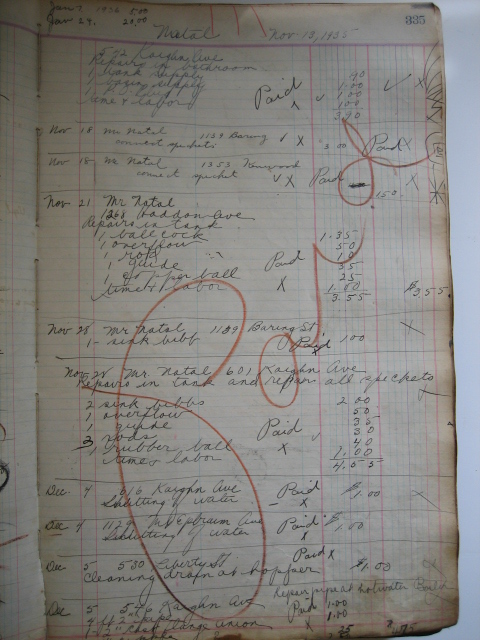 Jan 7, 1936 5.00
Jan 24. 20.00
335
Natal Nov-13, 1935
542 Kaighn Ave
Repairs in bathroom
1 tank supply 40
1 basin supply 1.00
1.00
time & labor Paid 1.00
3.90
Nov 18 Mr Natal 1139 Baring X
connect spickets 3.00 Paid X
Nov 18, Mr Natal 1353 Kenwood
connect spicket X Paid 1.50
Nov 21 Mr Natal
1268 Haddon Ave
Repairs in tank
1 ball cock 1.35
1 overflow 50
1 rod 10
1 guide Paid 35
copper ball 25
time & labor X 1.00
3.55 $3.55
Nov 28 Mr Natal 1139 Baring St
1- sink bibb Paid 1.00
Nov 28 Mr. Natal 601 Kaighn Ave
Repairs in tank and repair all spickets
2 sink bibbs 2.00
1 overflow 50
1 guide 35
3 rods Paid 30
1 rubber ball X 40
time & labor 1.00
4.55
Dec 4 616 Kaighn Ave Paid $1.00
Shutting of water X
Dec 4 1129 Mt Ephraim Ave Paid $1.00
Shutting of water X
Paid X
Dec 5 530 Liberty St $1.00
Cleaning drain at hopper
Repair pipe at hotwater
Dec 5 546 Kaighn Ave Paid 1.00
4 ft 2 pipe X 1.00
1-2 range union 35
Paid